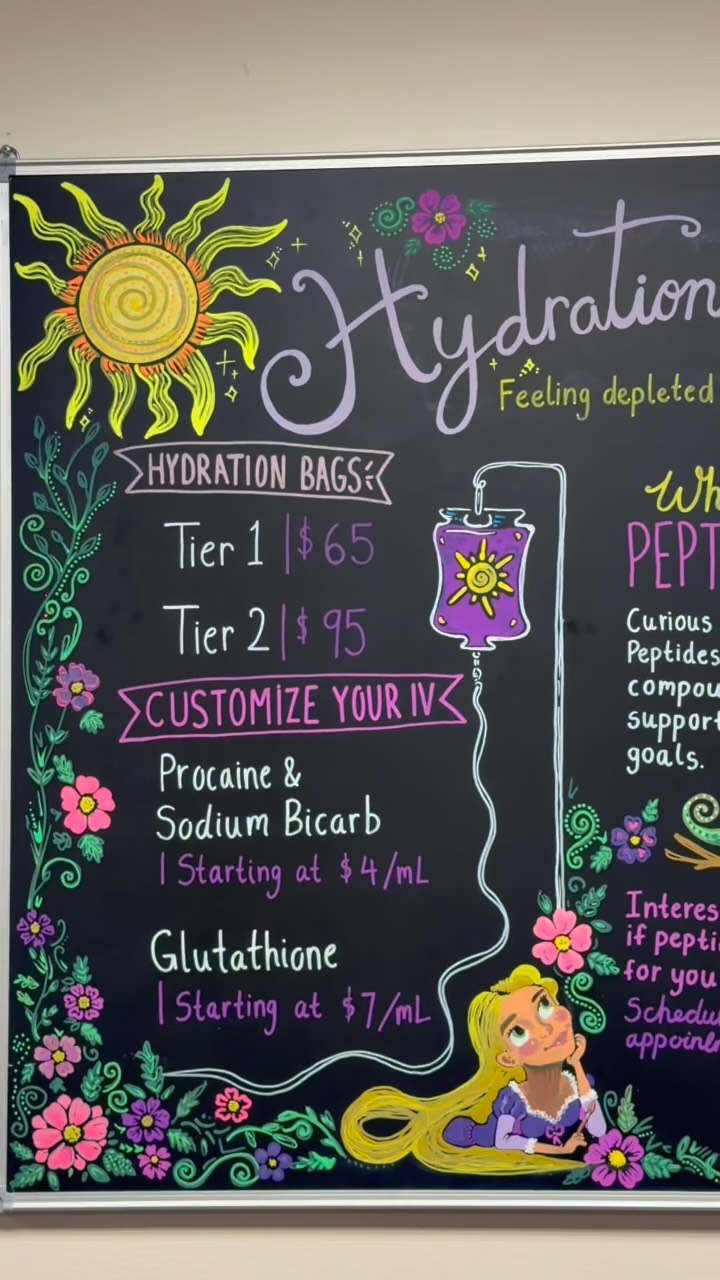 Hydration
Feeling depleted
HYDRATION BAGS
Tier 1 | $65
Tier 2 | $95
CUSTOMIZE YOUR IV
Procaine &
Sodium Bicarb
| Starting at $4/mL
Glutathione
| Starting at $7/mL
Wh
PEPT
Curious
Peptides
compou
support
goals.
Interes
if pepti
for you
Schedu
appoint